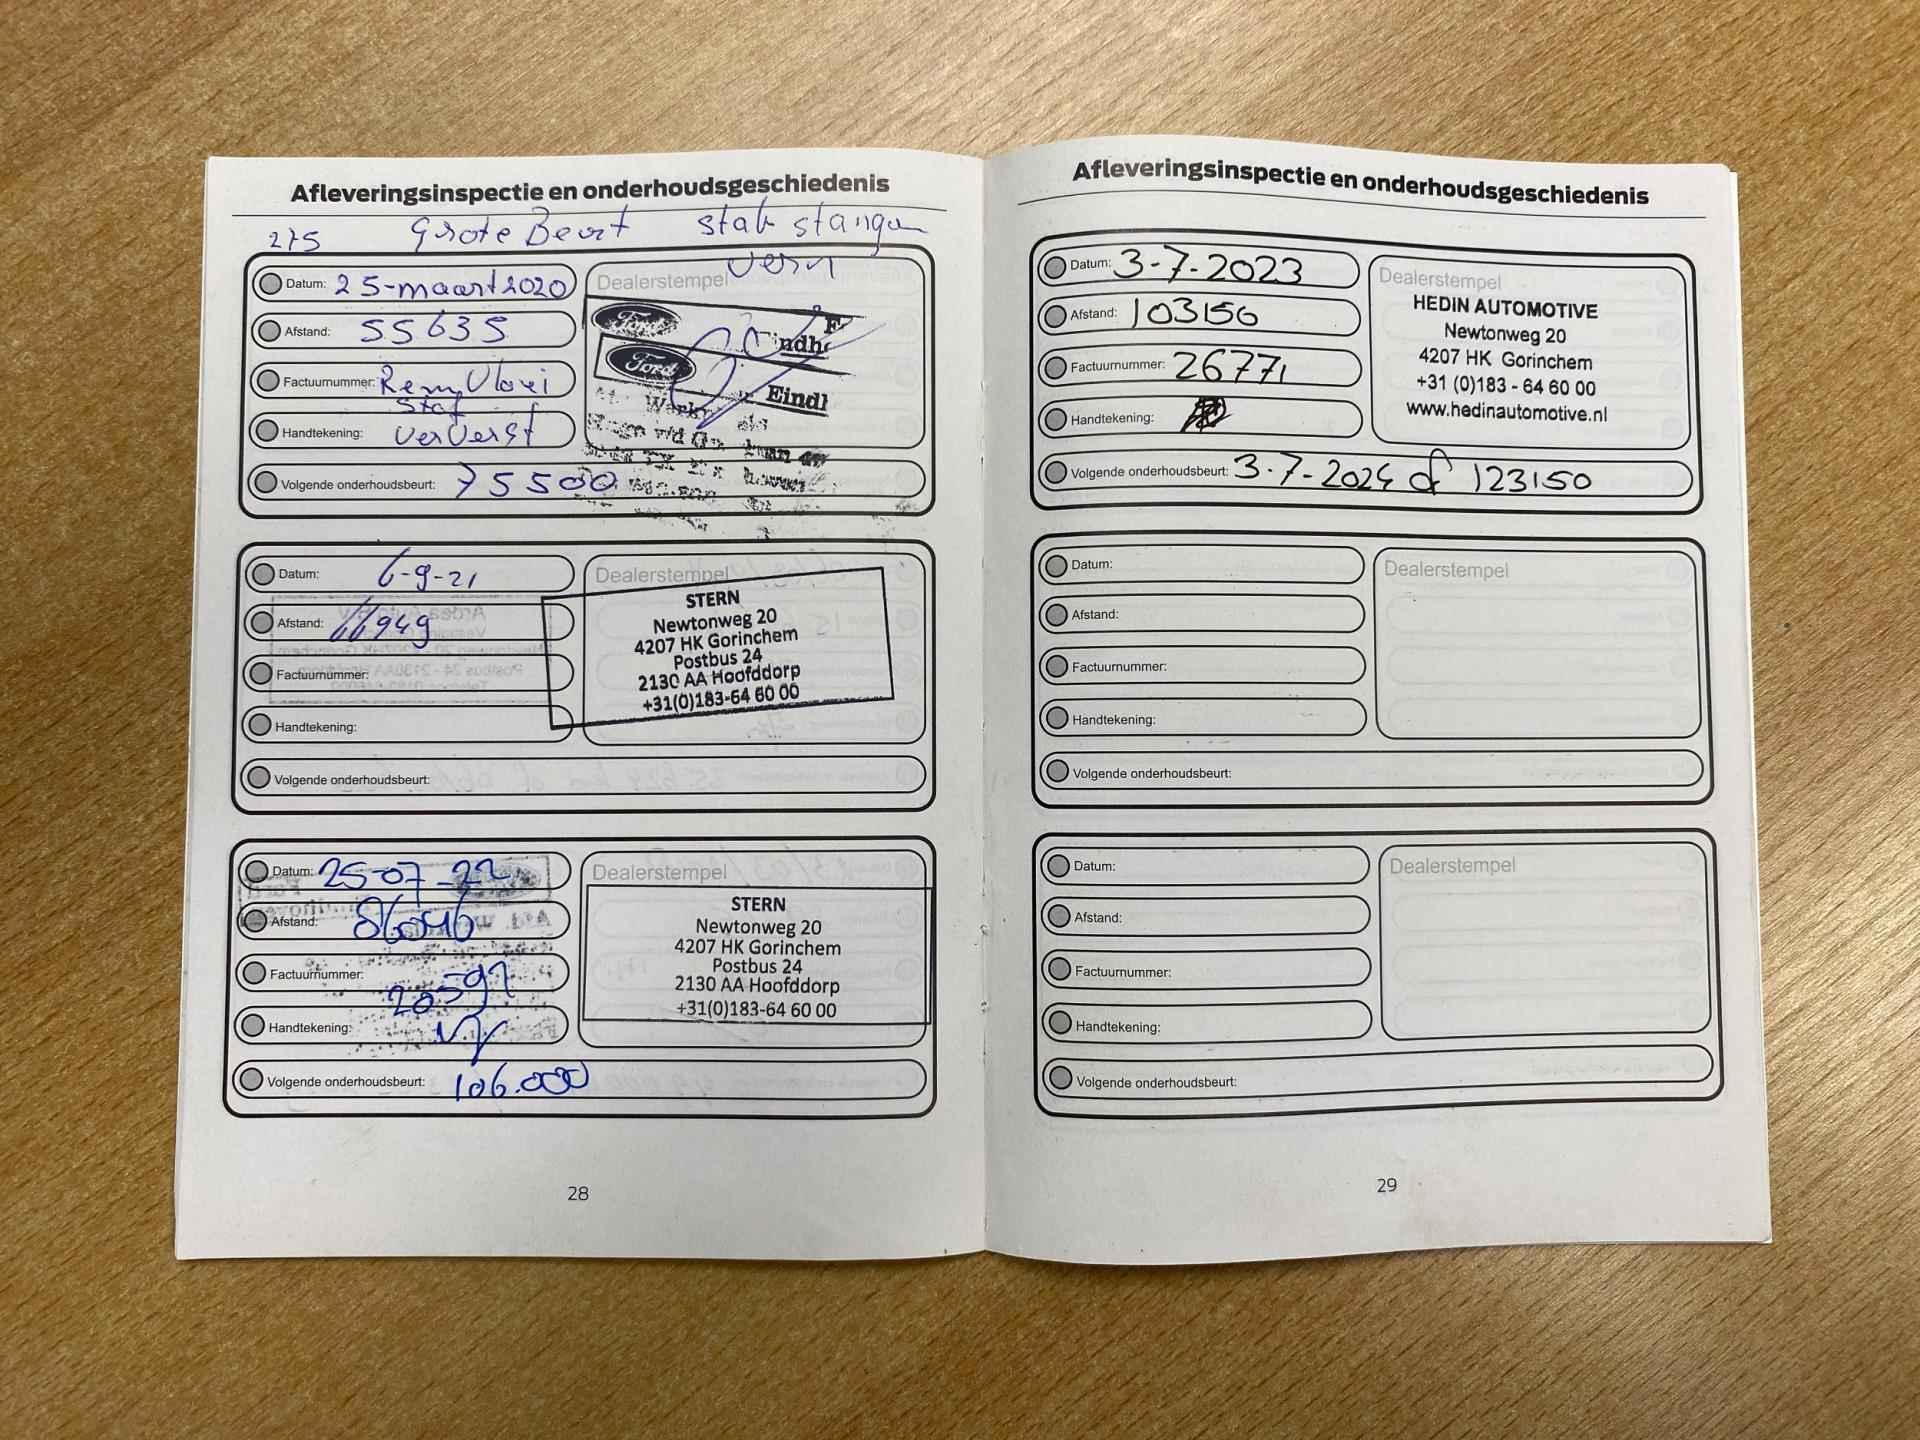 Afleveringsinspectie en onderhoudsgeschiedenis
275 Grote Beurt stab stangen
vern
Datum: 25-maart 2020
Afstand: 55635
Factuurnummer: Rem Vloei
stof
Handtekening: ververst
Volgende onderhoudsbeurt: 75500
Dealerstempel
Ford
Ford
Eindh
Datum: 6-9-21
Afstand: 66949
Factuurnummer:
Handtekening:
Volgende onderhoudsbeurt:
Dealerstempel
STERN
Newtonweg 20
4207 HK Gorinchem
Postbus 24
2130 AA Hoofddorp
+31(0)183-64 60 00
Datum: 25-07-22
Afstand: 86046
Factuurnummer: 20597
Handtekening:
Volgende onderhoudsbeurt: 106.000
Dealerstempel
STERN
Newtonweg 20
4207 HK Gorinchem
Postbus 24
2130 AA Hoofddorp
+31(0)183-64 60 00
28
Afleveringsinspectie en onderhoudsgeschiedenis
Datum: 3-7-2023
Afstand: 103150
Factuurnummer: 26771
Handtekening:
Volgende onderhoudsbeurt: 3-7-2024 of 123150
Dealerstempel
HEDIN AUTOMOTIVE
Newtonweg 20
4207 HK Gorinchem
+31 (0)183 - 64 60 00
www.hedinautomotive.nl
Datum:
Afstand:
Factuurnummer:
Handtekening:
Volgende onderhoudsbeurt:
Dealerstempel
Datum:
Afstand:
Factuurnummer:
Handtekening:
Volgende onderhoudsbeurt:
Dealerstempel
29